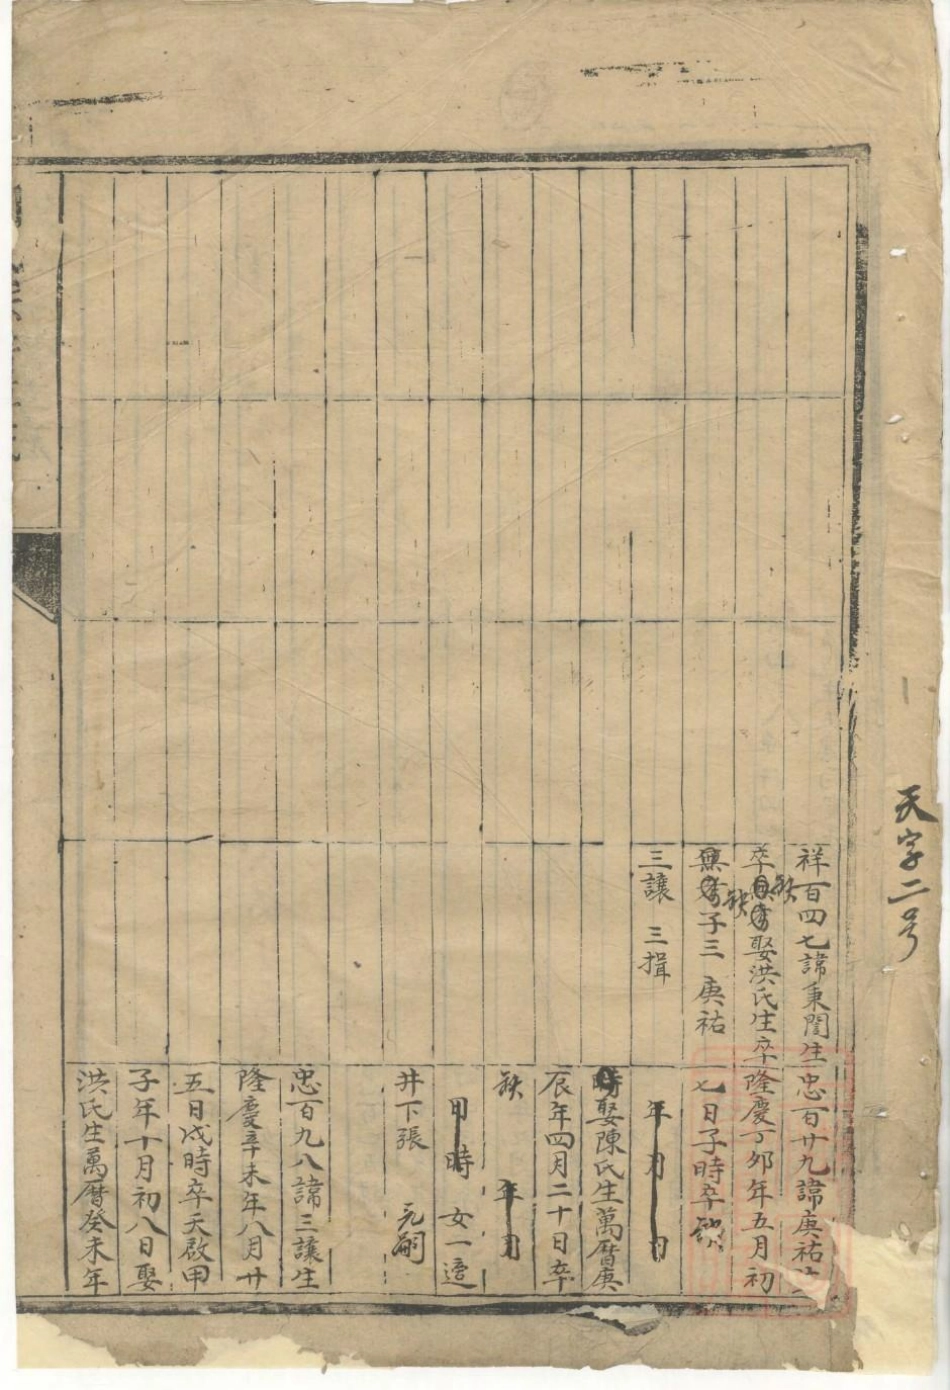 天字二号
祥百四七諱秉閏生
卒缺娶洪氏生卒
無缺子三 庚祐
三讓 三揖
忠百廿九諱庚祐生
隆慶丁夘年五月初
七日子時卒缺
年月日
時娶陳氏生萬曆庚
辰年四月二十日卒
缺 年月
日時 女一適
井下張 元嗣
忠百九八諱三讓生
隆慶辛未年八月廿
五日戌時卒天啟甲
子年十月初八日娶
洪氏生萬曆癸未年